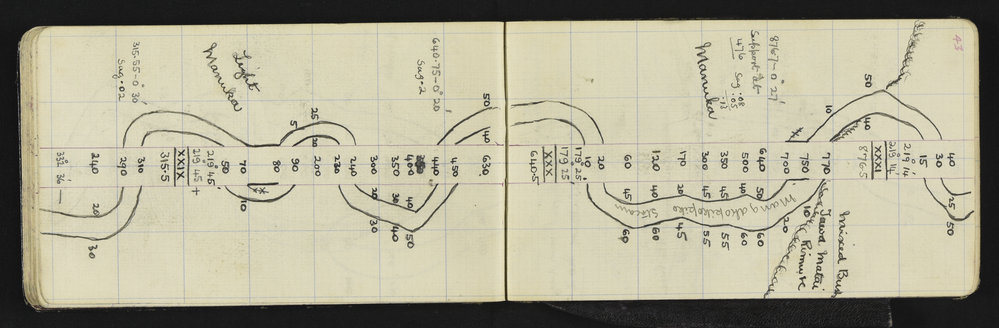 43
315.55-0° 30'
Sag.02
Light
Manuka
640.75-0° 20'
Sag.2
Manuka
876.7-0° 27'
Support at
476 Sag .08
.05
.13
50
50
40
25
5
10
50
40
240
290
310
315.5
XXIX
219° 45'
219 45 +
50
70
80
90
200
230
240
300
350
400
440
450
630
640.5
XXX
179° 25'
179 25'
10
20
60
120
170
300
350
500
640
700
750
770
876.5
XXXI
219° 14'
219 14'
15
30
40
20
30
10
20
30
30
40
40
50
45
60
40
60
20
45
45
55
45
55
40
60
50
60
20
10
25
50
Mangakokopiko
Stream
Mixed Bush
Tawa Matai
Rimu